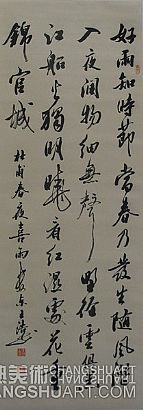 好雨知時節當春乃發生隨風潛
入夜潤物細無聲野徑雲俱
江船火獨明曉看紅濕處花重
錦官城
杜甫春夜喜雨
CHANGSHUART